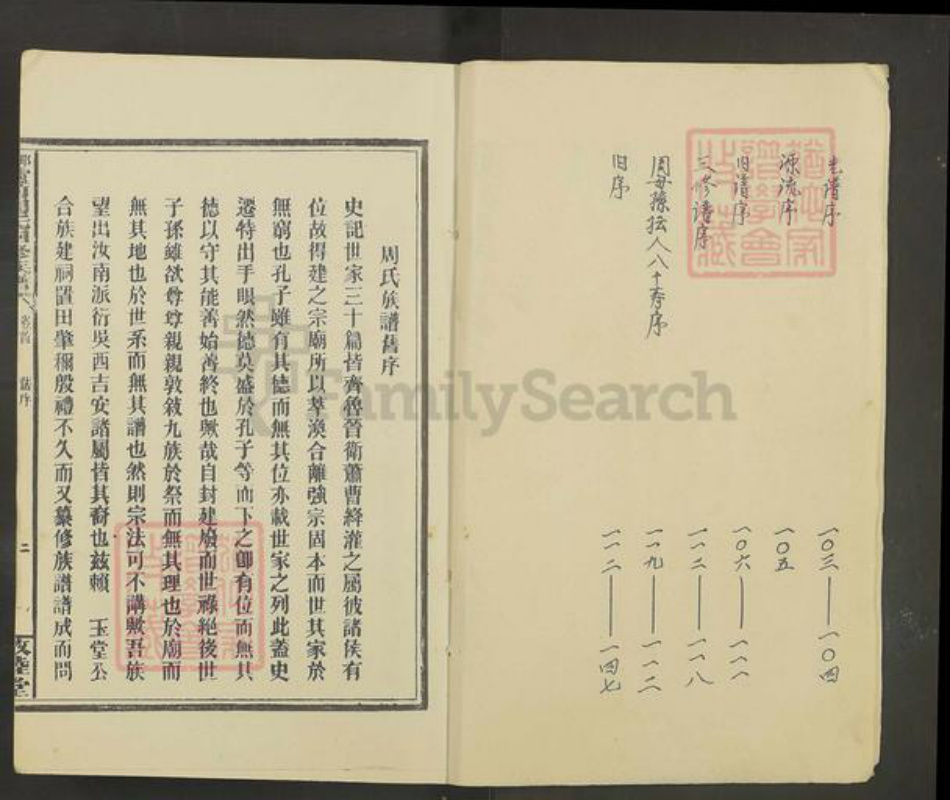 老谱序 一〇三——一〇四
源流序 一〇五
旧谱序 一〇六——一一一
三修谱序 一一二——一一八
周母孙坛人八十寿序 一一九——一一二
旧序 一一二——一四七
周氏族譜舊序
史記世家三十篇皆齊魯晉衛蕭曹絳灌之屬彼諸侯有
位故得建之宗廟所以萃渙合離強宗固本而世其家於
無窮也孔子雖有其德而無其位亦載世家之列此蓋史
遷特出手眼然德莫盛於孔子等而下之卽有位而無其
德以守其能善始善終也歟哉自封建廢而世祿絕後世
子孫雖欲尊尊親親敦敘九族於祭而無其理也於廟而
無其地也於世系而無其譜也然則宗法可不講歟吾族
望出汝南派衍吳西吉安諸屬皆其裔也茲賴 玉堂公
合族建祠置田肇禋殷禮不久而又纂修族譜譜成而問
卷之首 舊序 二
敦睦堂
FamilySearch